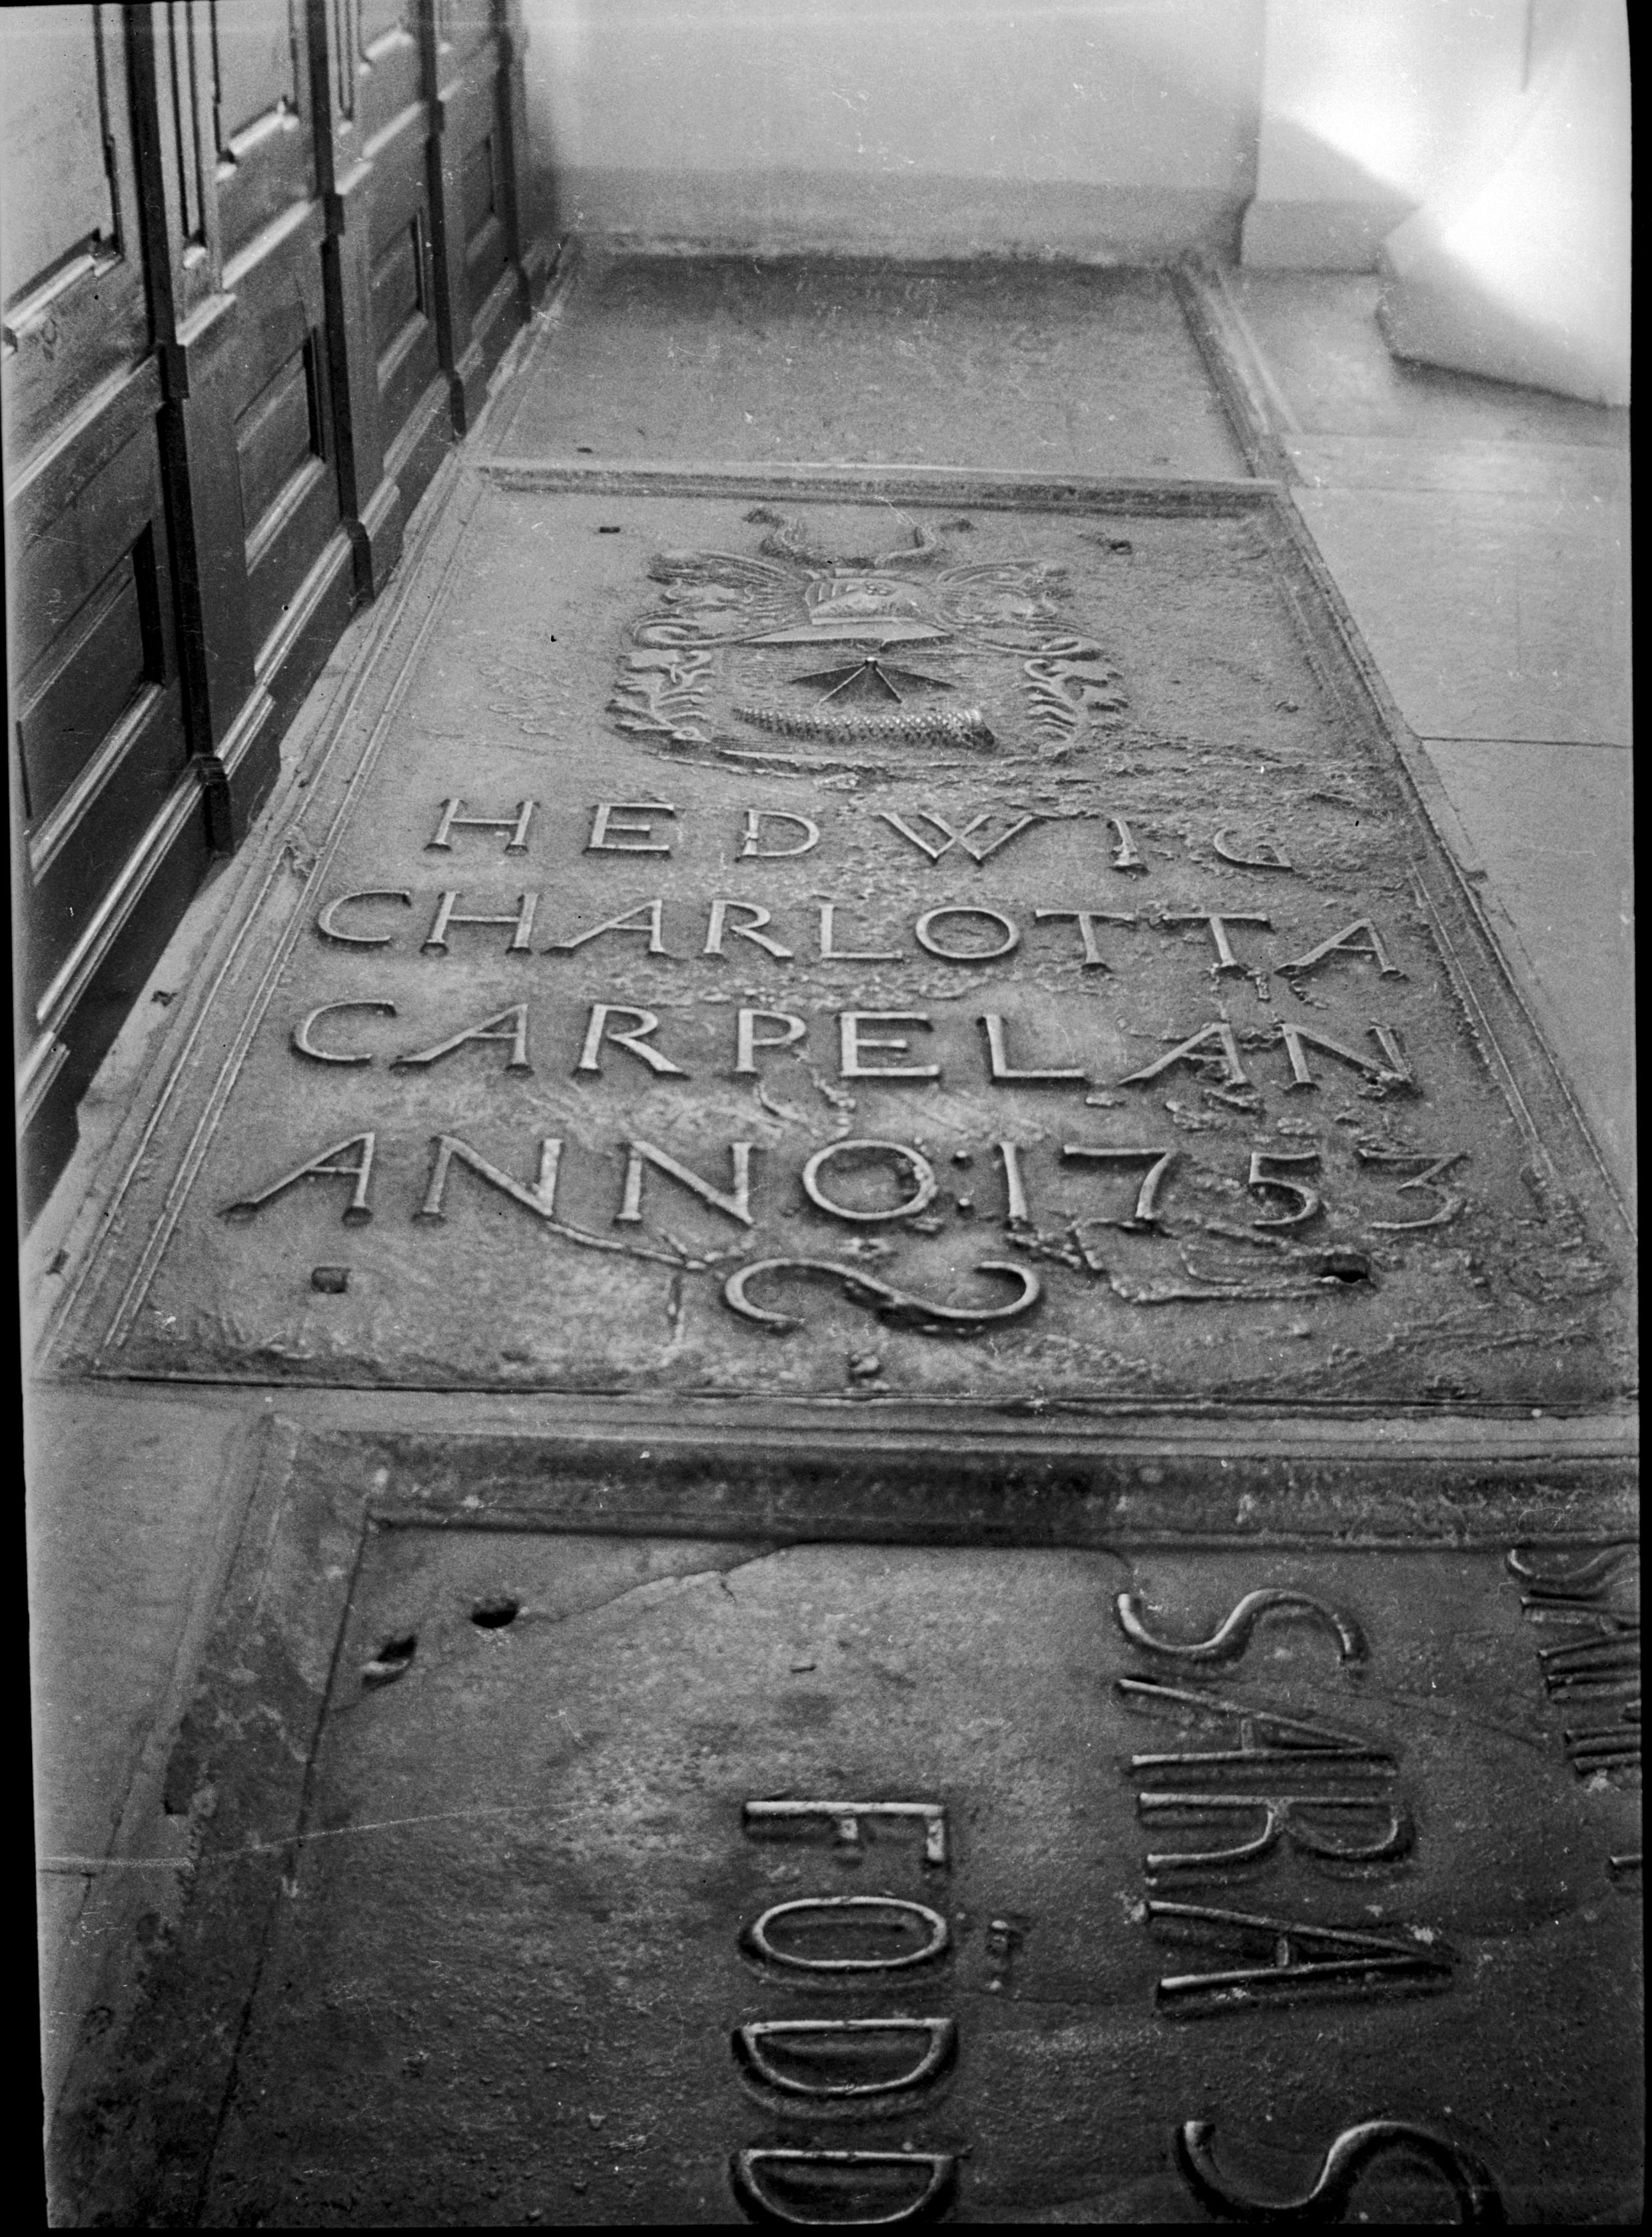 HEDWIG
CHARLOTTA
CARPELAN
ANNO:1753
SARA S
FODD